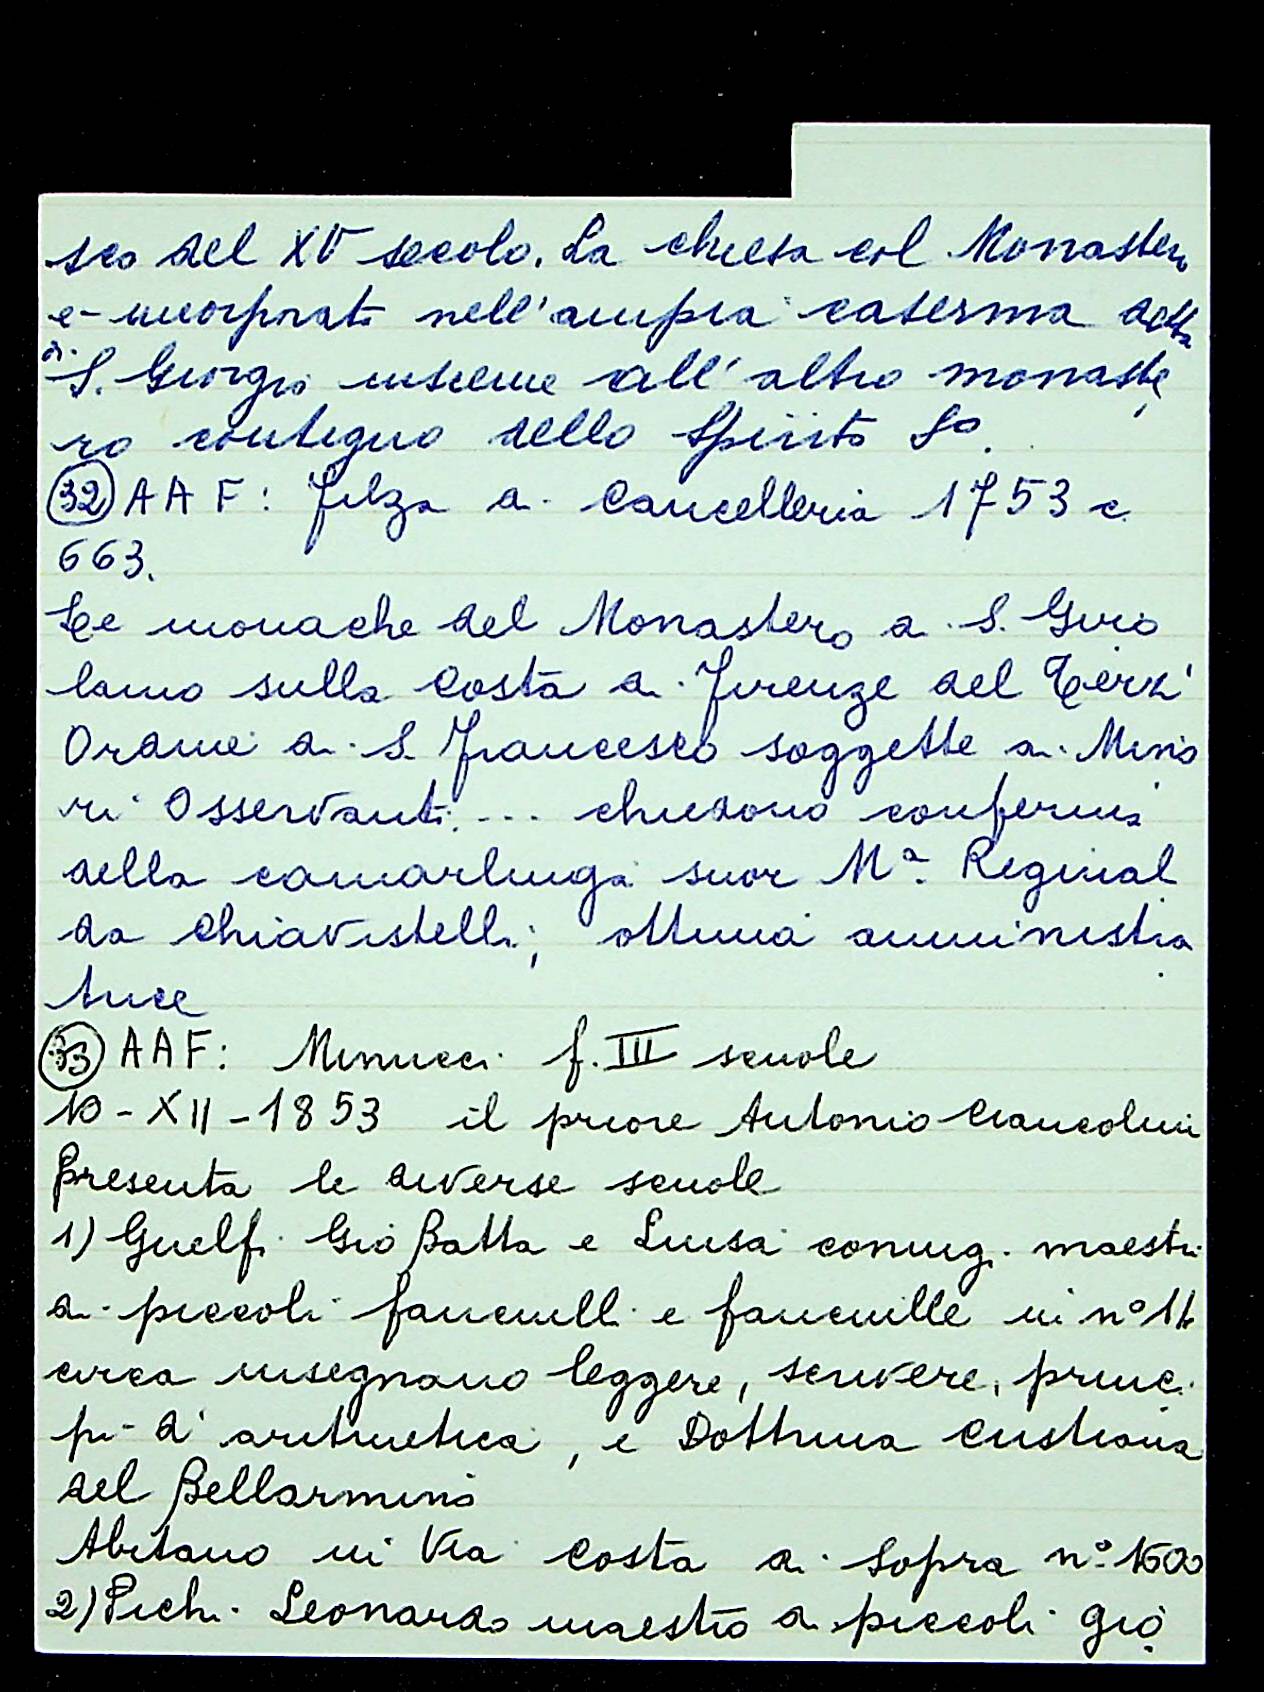 sco del XV secolo. La chiesa col Monastero
e- incorporato nell'ampia caserma detta
di S. Giorgio insieme all'altro monaste
ro contiguo dello Spirito So.
(32) AAF: filza di Cancelleria 1753 c
663.
Le monache del Monastero di S. Giro
lamo sulla Costa di Firenze del Terz'
Ordine di S. Francesco soggette ai Mino
ri Osservanti.... chiedono conferma
della camarlinga suor Ma. Reginal
da Chiavistelli; ottima amministra
trice
(33) AAF: Minucci f. III scuole
10-XII-1853 il priore Antonio Ciancolini
presenta le diverse scuole
1) Guelfi Gio Batta e Luisa coniug. maestri
di piccoli fanciulli e fanciulle in n° 14
circa insegnano leggere, scrivere, princi
pi d'aritmetica, e Dottrina Cristiana
del Bellarmino
Abitano in Via Costa di Sopra n° 1600
2) Pichi Leonardo maestro di piccoli gio